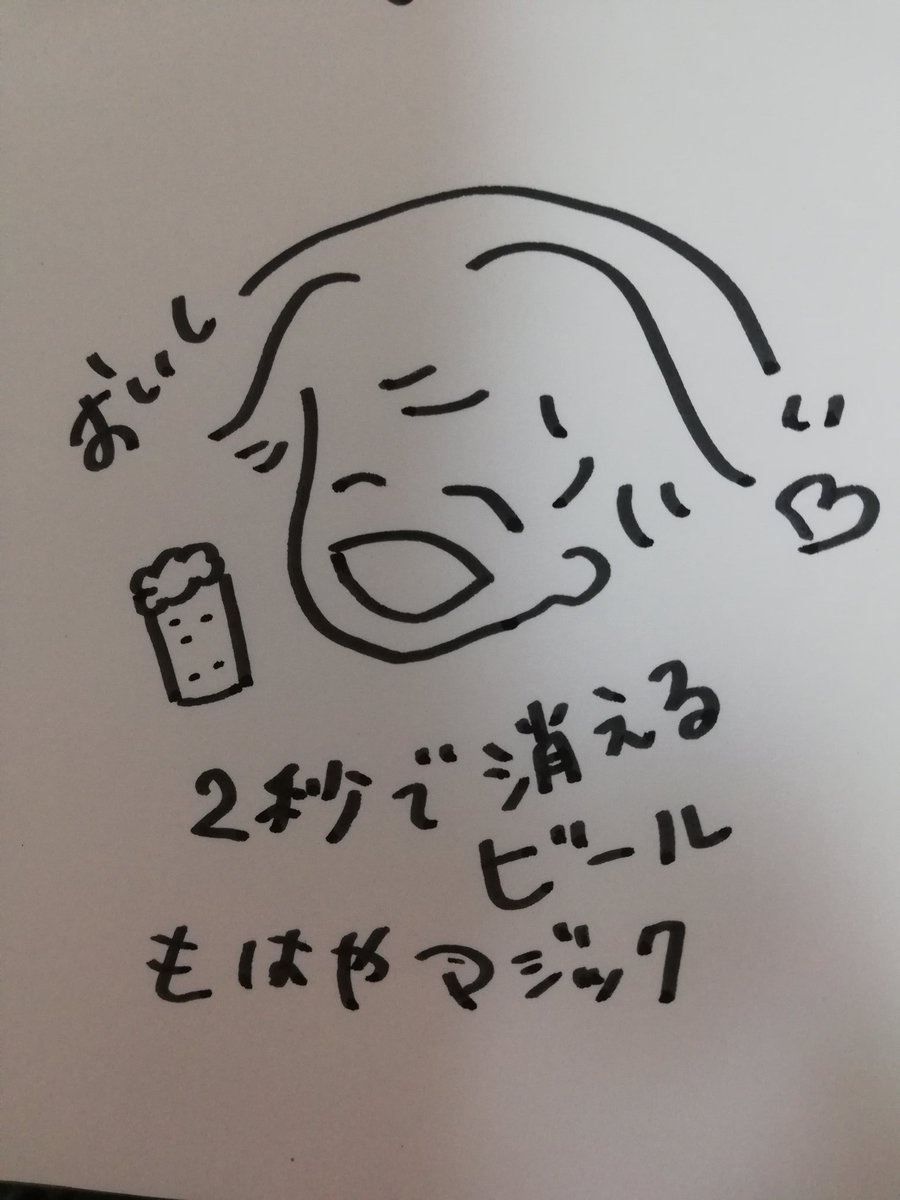 おいし
い
2秒で消える
ビール
もはやマジック